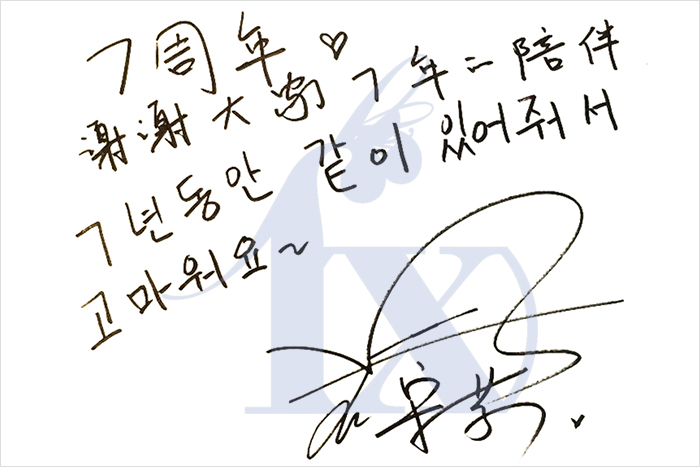 7周年 ♡
谢谢大家 7年二陪伴
7년동안 같이 있어줘서
고마워요~
IX